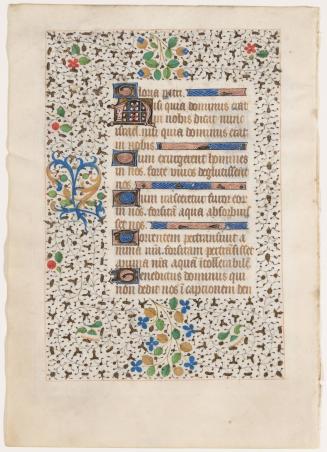 Gloria patri.
Nisi quia dominus erat
in nobis dicat nunc
israel. nisi quia dominus erat
in nobis
Cum exurgerent homines
in nos. forte vivos deglutissent
nos
Cum irasceretur furor eor
in nos. forsitā aqua absorbuis
set nos
Torrentem pertransivit a
nima nr̄a. forsitam pertransisset
anima nr̄a aquā ītollerabilē
Benedictus dominus qui
non dedit nos ī captionem den